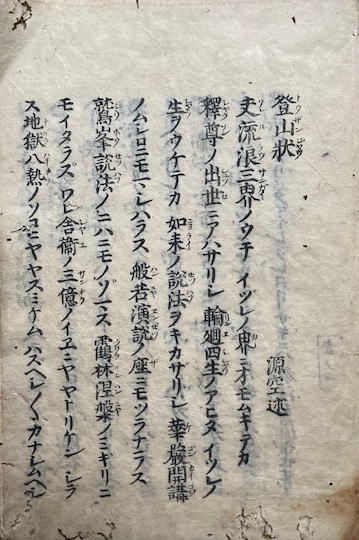 登山状
源空述
夫流浪三界ノウチ イヅレノ界ニオモムキテカ
釋尊ノ出世ニアハサリシ 輪廻四生ノアヒタ イツレノ
生ヲウケテカ 如来ノ説法ヲキカザリシ 華嚴開講
ノムシロニモマシハラス 般若演説ノ座ニモツラナラス
鷲峯説法ノニハニモノゾマス 鶴林涅槃ノミギリニ
モイタラズ ワレ舎衞ノ三億ノイヱニヤヤトリケン シラ
ス地獄八熱ノソコニヤヤスミケム ハズヘシ〱カナシムヘシ